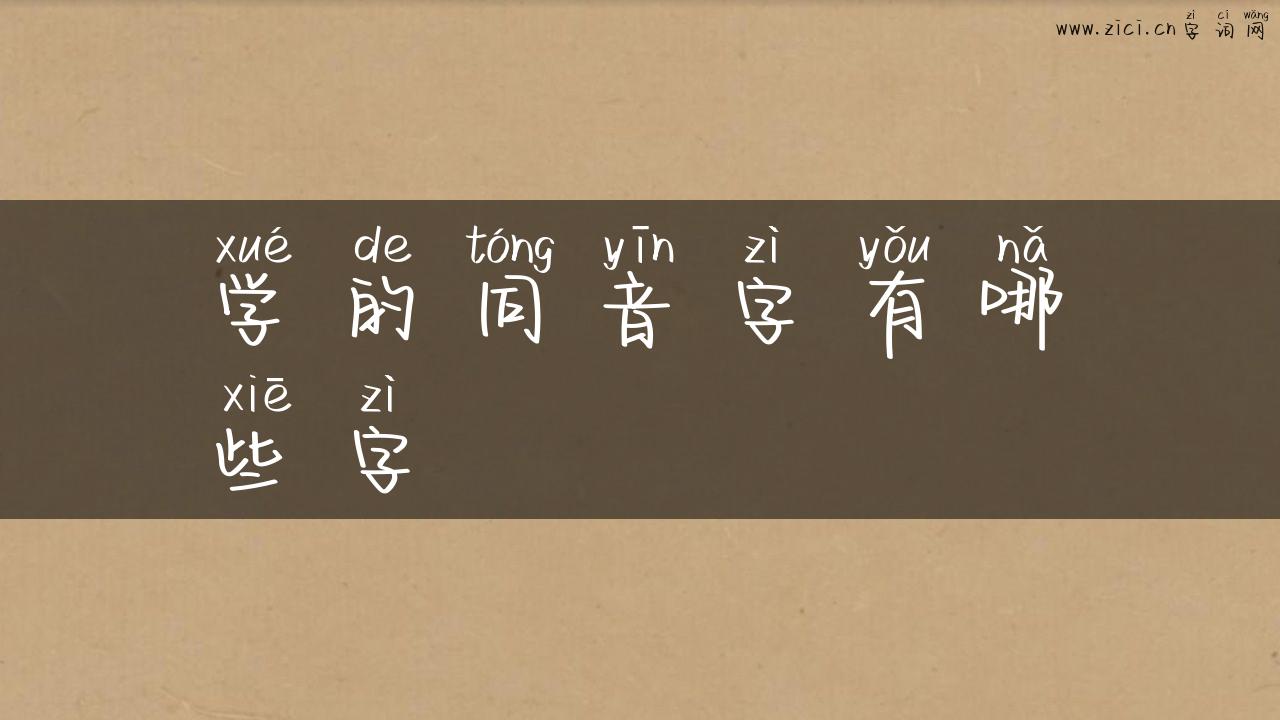 www.zici.cn字词网
zì cí wǎng
xué de tóng yīn zì yǒu nǎ
学的同音字有哪
xiē zì
些字